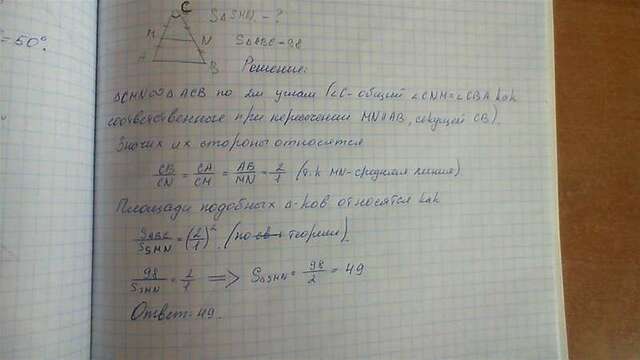 = 50°.
C
M
N
A
B
S△SMN - ?
S△ABC - 98
Решение:
△CMN∾△ACB по 2м углам (∠C - общий ∠CNM = ∠CBA как
соответственные при пересечении MN∥AB, секущей CB).
Значит их стороны относятся
CB/CN = CA/CM = AB/MN = 2/1 (т.к MN - средняя линия)
Площади подобных △-ков относятся как
SABC/SSMN = (2/1)² (по теории).
98/SSMN = 2/1 ⟹ S△SMN = 98/2 = 49
Ответ: 49.